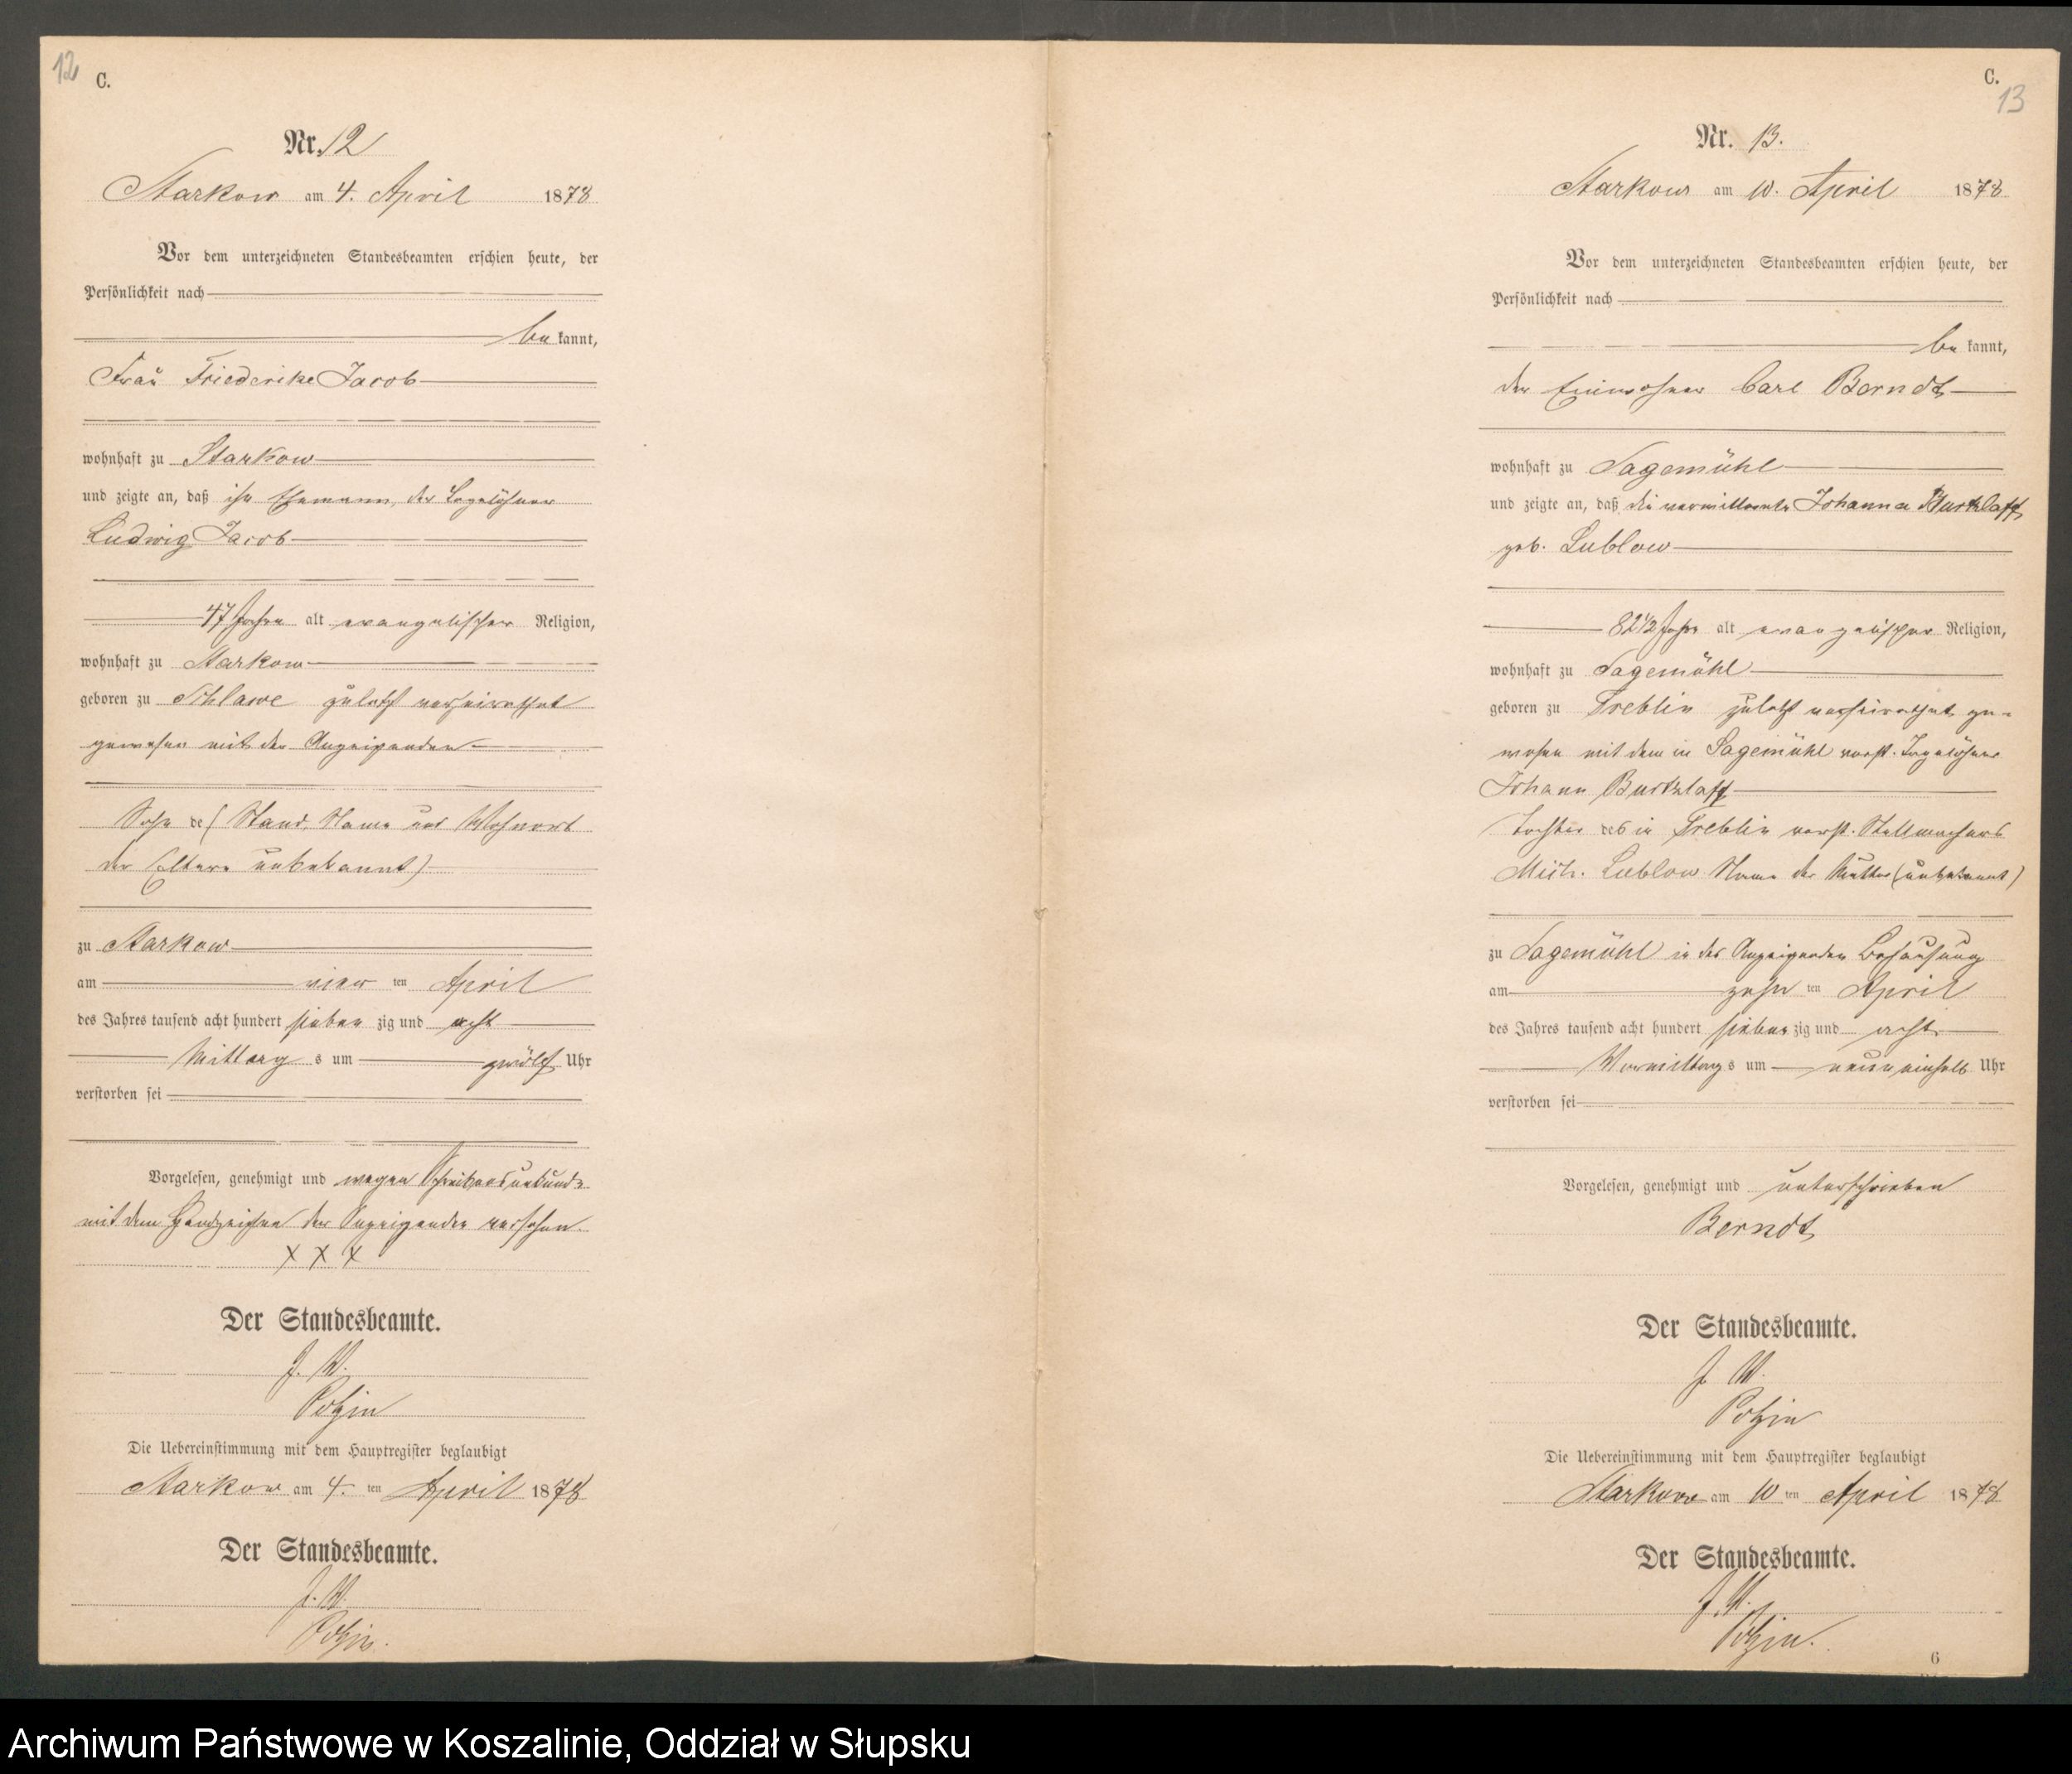 12
C.
Nr. 12
Starkow am 4. April 1878
Vor dem unterzeichneten Standesbeamten erschien heute, der
Persönlichkeit nach
bekannt,
Frau Friederike Jacob
wohnhaft zu Starkow
und zeigte an, daß ihr Ehemann, der Tagelöhner
Ludwig Jacob
47 Jahre alt evangelischer Religion,
wohnhaft zu Starkow
geboren zu Schlawe zuletzt verheirathet
gewesen mit der Anzeigenden
Sohn de (Stand, Name und Wohnort
der Eltern unbekannt)
zu Starkow
am vier ten April
des Jahres tausend acht hundert sieben zig und acht
Mittag s um zwölf Uhr
verstorben sei
Vorgelesen, genehmigt und wegen Schreibensunkunde
mit dem Handzeichen der Anzeigenden versehen.
X X X
Der Standesbeamte.
J. V.
Potzin
Die Uebereinstimmung mit dem Hauptregister beglaubigt
Starkow am 4. ten April 1878
Der Standesbeamte.
J. V.
Potzin.
C.
13
Nr. 13.
Starkow am 10. April 1878
Vor dem unterzeichneten Standesbeamten erschien heute, der
Persönlichkeit nach
bekannt,
der Einwohner Carl Berndt
wohnhaft zu Sagemühl
und zeigte an, daß die verwittwete Johanna Burtzlaff
geb. Lublow
82 1/2 Jahre alt evangelischer Religion,
wohnhaft zu Sagemühl
geboren zu Treblin zuletzt verheirathet ge-
wesen mit dem in Sagemühl verst. Tagelöhner
Johann Burtzlaff
Tochter des in Treblin verst. Stellmachers
Mich. Lublow Name der Mutter (unbekannt)
zu Sagemühl in des Anzeigenden Behausung
am zehn ten April
des Jahres tausend acht hundert sieben zig und acht
Vormittag s um neun einhalb Uhr
verstorben sei
Vorgelesen, genehmigt und unterschrieben
Berndt
Der Standesbeamte.
J. V.
Potzin
Die Uebereinstimmung mit dem Hauptregister beglaubigt
Starkow am 10 ten April 1878
Der Standesbeamte.
J. V.
Potzin.
6
Archiwum Państwowe w Koszalinie, Oddział w Słupsku